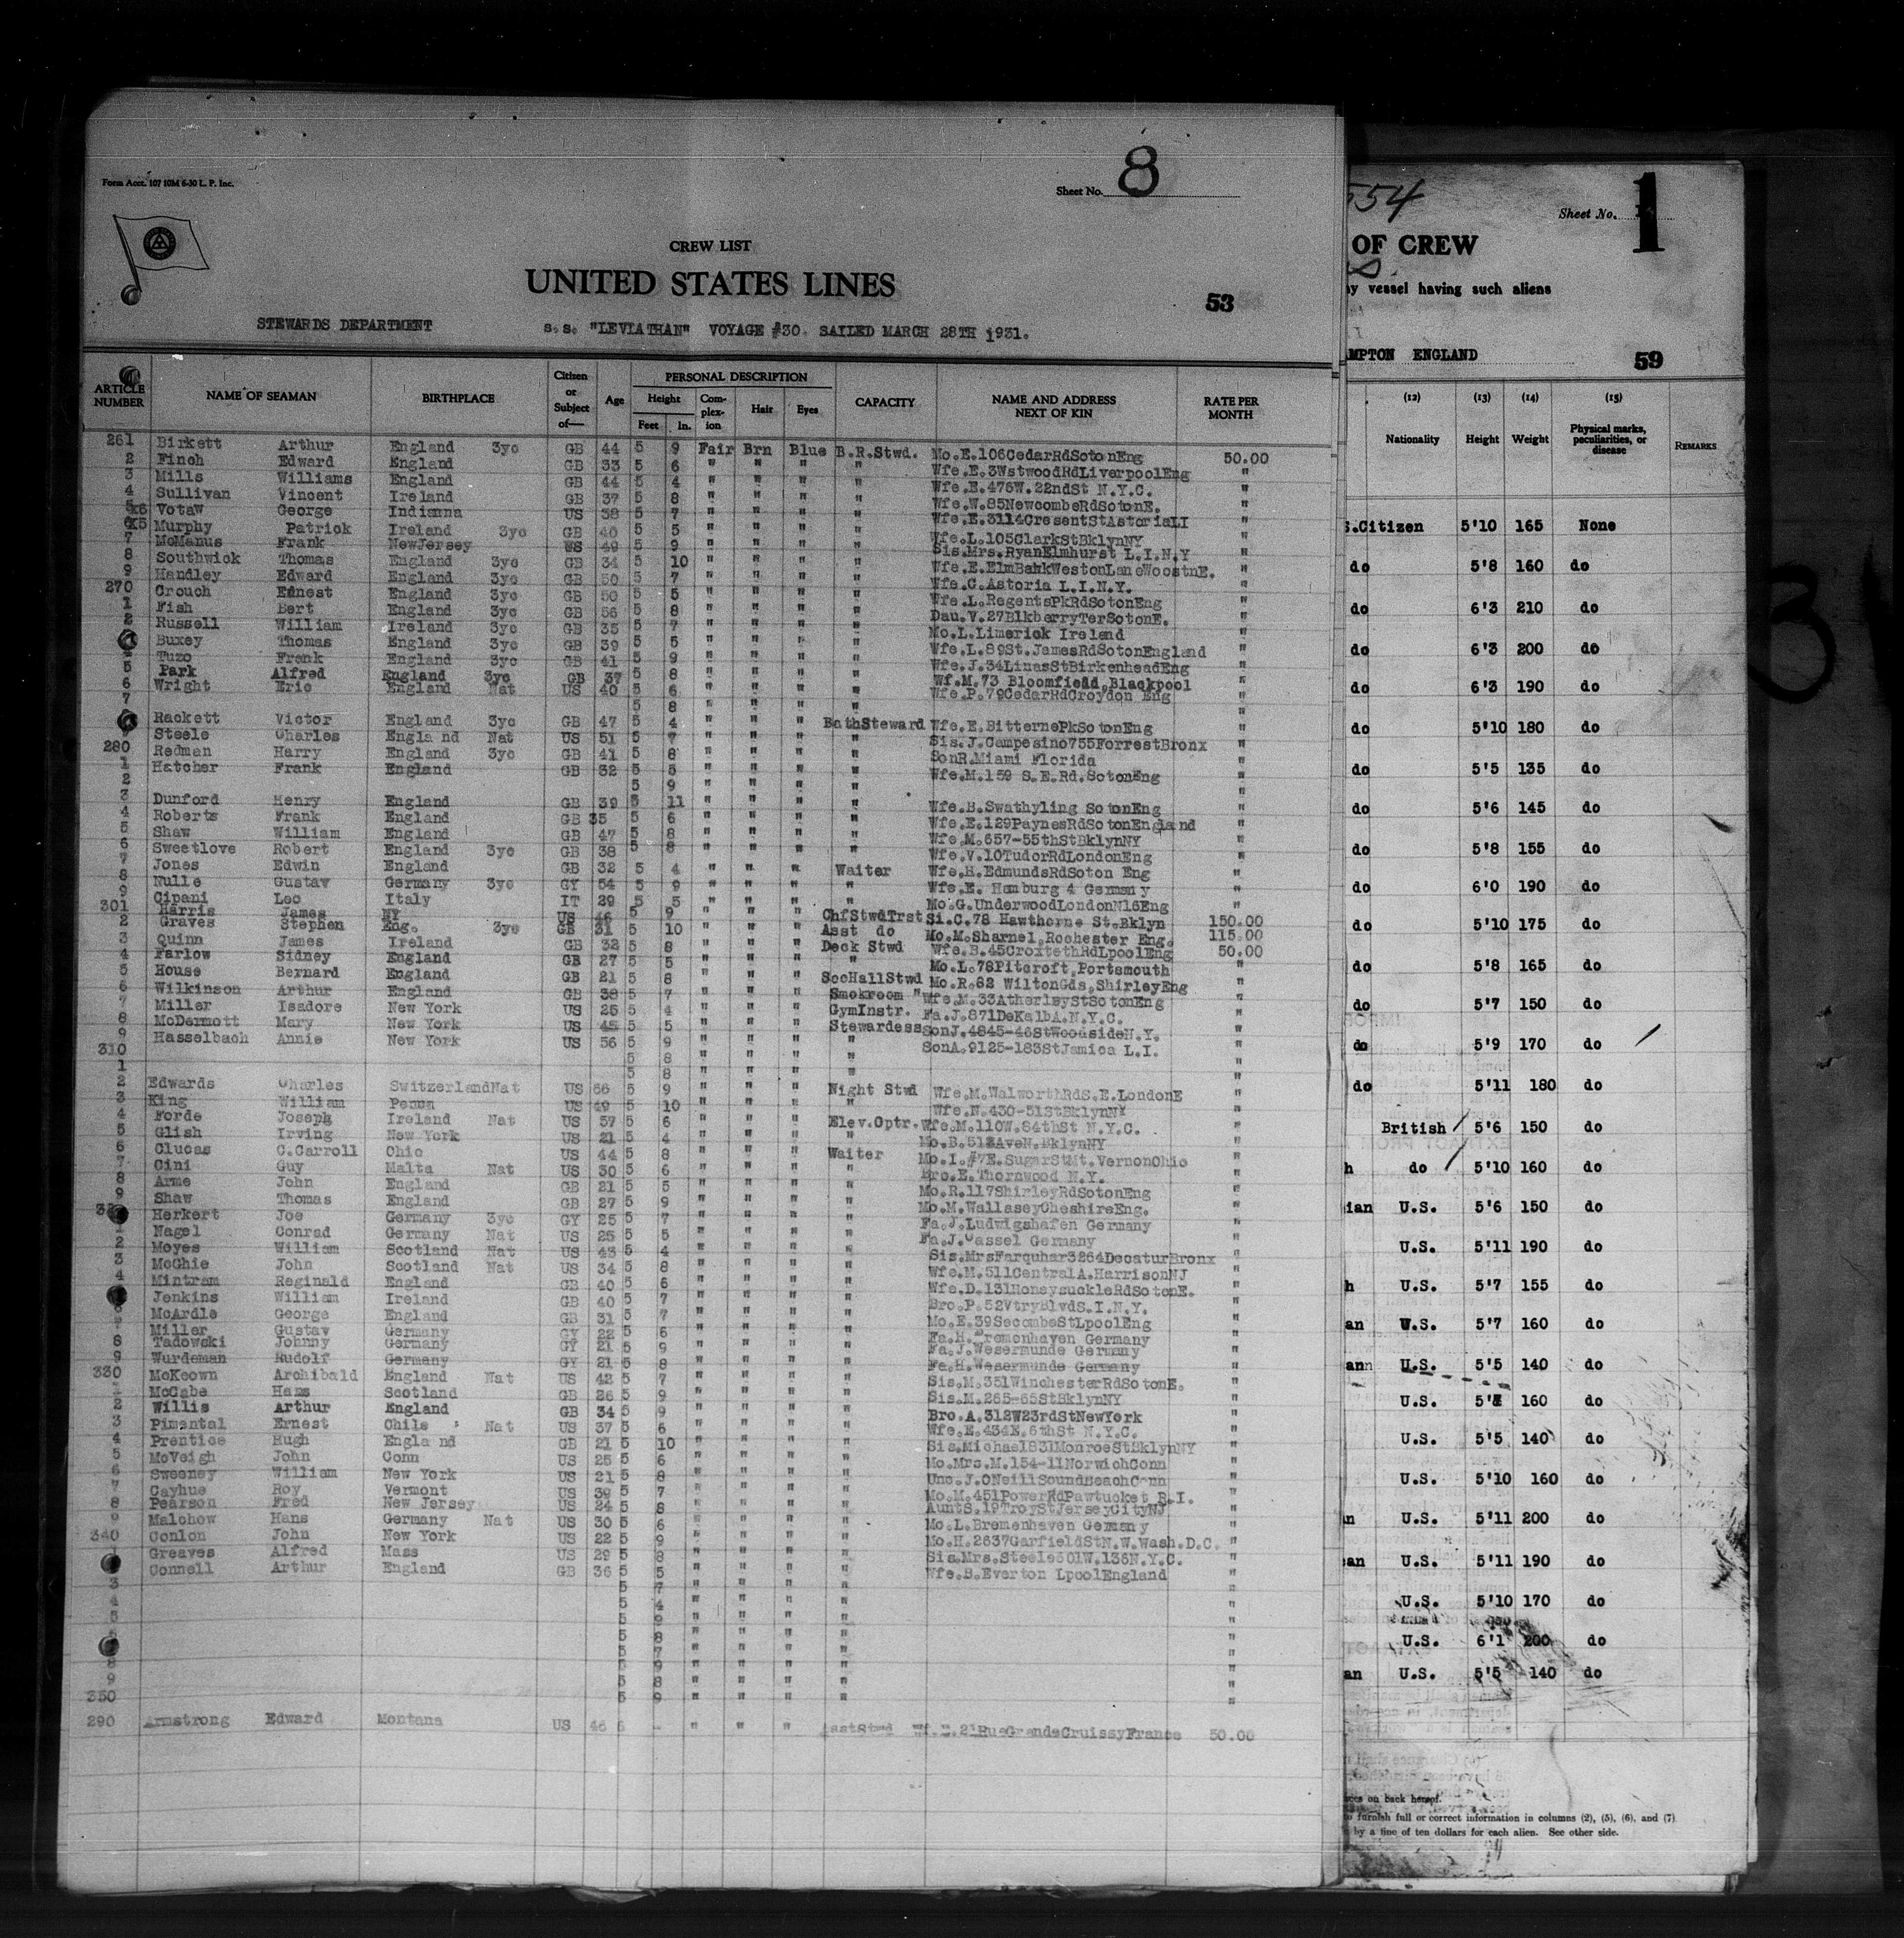 Form Acct. 107 10M 6-30 L. P. Inc.
Sheet No. 8
CREW LIST
UNITED STATES LINES
53
STEWARDS DEPARTMENT s.s. "LEVIATHAN" VOYAGE #30. SAILED MARCH 28TH 1931.
ARTICLE NUMBER NAME OF SEAMAN BIRTHPLACE Citizen or Subject of— Age PERSONAL DESCRIPTION Height Feet In. Com-plex-ion Hair Eyes CAPACITY NAME AND ADDRESS NEXT OF KIN RATE PER MONTH
261 Birkett Arthur England 3yc GB 44 5 9 Fair Brn Blue B.R.Stwd. Mo.E.106CedarRdSotonEng 50.00
2 Finch Edward England GB 33 5 6 " " " " Wfe.E.3WstwoodRdLiverpoolEng "
3 Mills Williams England GB 44 5 4 " " " " Wfe.E.476W.22ndSt N.Y.C. "
4 Sullivan Vincent Ireland GB 37 5 8 " " " " Wfe.W.85NewcombeRdSotonE. "
Votaw George Indianna US 38 5 7 " " " " Wfe.E.3114CresentStAstoriaLI "
K5 Murphy Patrick Ireland 3yc GB 40 5 5 " " " " Wfe.L.105ClarkStBklynNY "
7 McManus Frank NewJersey US 49 5 9 " " " " Sis.Mrs.RyanElmhurst L.I.N.Y "
8 Southwick Thomas England 3yc GB 34 5 10 " " " " Wfe.E.ElmBankWestonLaneWoostnE. "
9 Handley Edward England 3yc GB 50 5 7 " " " " Wfe.C.Astoria L.I.N.Y. "
270 Crouch Ednest England 3yc GB 50 5 5 " " " " Wfe.L.RegentsPkRdSotonEng "
1 Fish Bert England 3yc GB 56 5 8 " " " " Dau.V.27BlkberryTerSotonE. "
2 Russell William Ireland 3yc GB 35 5 7 " " " " Mo.L.Limerick Ireland "
Buxey Thomas England 3yc GB 39 5 5 " " " " Wfe.L.89St.JamesRdSotonEngland "
Tuzo Frank England 3yc GB 41 5 9 " " " " Wfe.J.34LinasStBirkenheadEng "
5 Park Alfred England 3yc GB 37 5 8 " " " " Wf.M.73 Bloomfield,Blackpool "
6 Wright Eric England Nat US 40 5 6 " " " " Wfe.P.79CedarRdCroydon Eng "
7 5 8 " " " "
Rackett Victor England 3yc GB 47 5 4 " " " BathSteward Wfe.E.BitternePkSotonEng "
Steele Charles England Nat US 51 5 7 " " " " Sis.J.Campesino755ForrestBronx "
280 Redman Harry England 3yc GB 41 5 8 " " " " SonR.Miami Florida "
1 Hatcher Frank England GB 32 5 5 " " " " Wfe.M.159 S.E.Rd.SotonEng "
2 5 9 " " " " "
3 Dunford Henry England GB 39 5 11 " " " " Wfe.B.Swathyling SotonEng "
4 Roberts Frank England GB 35 5 6 " " " " Wfe.E.129PaynesRdSotonEngland "
5 Shaw William England GB 47 5 8 " " " " Wfe.M.657-55thStBklynNY "
6 Sweetlove Robert England 3yc GB 38 5 8 " " " " Wfe.V.10TudorRdLondonEng "
7 Jones Edwin England GB 32 5 4 " " " Waiter Wfe.H.EdmundsRdSoton Eng "
8 Nulle Gustav Germany 3yc GY 54 5 9 " " " " Wfe.E. Hamburg 4 Germany "
9 Cipani Leo Italy IT 29 5 5 " " " " Mo.G.UnderwoodLondonN16Eng "
301 Harris James NY US 46 5 9 " " " ChfStwdTrst Si.C.78 Hawthorne St.Bklyn 150.00
2 Graves Stephen Eng. 3yc GB 31 5 10 " " " Asst do Mo.M.Sharnel,Rochester Eng. 115.00
3 Quinn James Ireland GB 32 5 8 " " " Deck Stwd Wfe.B.45CroxtethRdLpoolEng 50.00
4 Farlow Sidney England GB 27 5 5 " " " " Mo.L.78Pitcroft,Portsmouth "
5 House Bernard England GB 21 5 8 " " " SocHallStwd Mo.R.62 WiltonGds,ShirleyEng "
6 Wilkinson Arthur England GB 38 5 7 " " " Smokroom " Wfe.M.33AtherleyStSotonEng "
7 Miller Isadore New York US 25 5 4 " " " GymInstr. Fa.J.871DeKalbA.N.Y.C. "
8 McDermott Mary New York US 45 5 5 " " " Stewardess SonJ.4845-46StWoodsideN.Y. "
9 Hasselbach Annie New York US 56 5 9 " " " " SonA.9125-183StJamica L.I. "
310 5 8 " " " " "
1 5 8 " " " "
2 Edwards Charles SwitzerlandNat US 66 5 9 " " " Night Stwd Wfe.M.WalworthRdS.E.LondonE "
3 King William Penna US 49 5 10 " " " " Wfe.N.430-51StBklynNY "
4 Forde Joseph Ireland Nat US 57 5 6 " " " Elev.Optr. Wfe.M.110W.84thSt N.Y.C. "
5 Glish Irving New York US 21 5 4 " " " " Mo.B.512AveN.BklynNY "
6 Clucas C.Carroll Ohio US 44 5 8 " " " Waiter Mo.I.#7E.SugarStMt.VernonOhio "
7 Cini Guy Malta Nat US 30 5 6 " " " " Bro.E.Thornwood N.Y. "
8 Arme John England GB 21 5 5 " " " " Mo.R.117ShirleyRdSotonEng "
9 Shaw Thomas England GB 27 5 9 " " " " Mo.M.WallaseyCheshireEng. "
Herkert Joe Germany 3yc GY 25 5 7 " " " " Fa.J.Ludwigshafen Germany "
Nagel Conrad Germany Nat US 25 5 5 " " " " Fa.J.Cassel Germany "
2 Moyes William Scotland Nat US 43 5 4 " " " " Sis.MrsFarquhar3264DecaturBronx "
3 McGhie John Scotland Nat US 34 5 8 " " " " Wfe.M.511CentralA.HarrisonNJ "
4 Mintram Reginald England GB 40 5 6 " " " " Wfe.D.131HoneysuckleRdSotonE. "
Jenkins William Ireland GB 40 5 7 " " " " Bro.P.52VtryBlvdS.I.N.Y. "
McArdle George England GB 31 5 7 " " " " Mo.E.39SecombeStLpoolEng "
7 Miller Gustav Germany GY 22 5 6 " " " " Fa.H.Bremenhaven Germany "
8 Tadowski Johnny Germany GY 21 5 9 " " " " Fa.J.Wesermunde Germany "
9 Wurdeman Rudolf Germany GY 21 5 8 " " " " Fa.H.Wesermunde Germany "
330 McKeown Archibald England Nat US 42 5 7 " " " " Sis.M.351WinchesterRdSotonE. "
McCabe Hans Scotland GB 26 5 9 " " " " Sis.M.265-65StBklynNY "
2 Willis Arthur England GB 34 5 9 " " " " Bro.A.312W23rdStNewYork "
3 Pimental Ernest Chile Nat US 37 5 6 " " " " Wfe.E.434E.6thSt N.Y.C. "
4 Prentice Hugh England GB 21 5 10 " " " " Sis.Michael831MonroeStBklynNY "
5 McVeigh John Conn US 25 5 6 " " " " Mo.Mrs.M.154-11NorwichConn "
6 Sweeney William New York US 21 5 8 " " " " Unc.J.ONeillSoundBeachConn "
7 Cayhue Roy Vermont US 39 5 7 " " " " Mo.M.451PowerRdPawtucket R.I. "
8 Pearson Fred New Jersey US 24 5 8 " " " " AuntS.19TroyStJerseyCityNJ "
9 Malchow Hans Germany Nat US 30 5 6 " " " " Mo.L.Bremenhaven Germany "
340 Conlon John New York US 22 5 9 " " " " Mo.H.2637GarfieldStN.W.Wash.D.C. "
Greaves Alfred Mass US 29 5 8 " " " " Sis.Mrs.Steele501W.136N.Y.C. "
Connell Arthur England GB 36 5 5 " " " " Wfe.B.Everton LpoolEngland "
3 5 7 " " " " "
4 5 4 " " " " "
5 5 9 " " " " "
5 8 " " " " "
5 7 " " " " "
8 5 9 " " " " "
9 5 8 " " " " "
350 5 9 " " " " "
290 Armstrong Edward Montana US 46 " " " Wf. 21RueGrandeCruissyFrance 50.00
554
Sheet No. 1
OF CREW
vessel having such aliens
AMPTON ENGLAND
59
(12) (13) (14) (15)
Nationality Height Weight Physical marks, peculiarities, or disease REMARKS
S.Citizen 5'10 165 None
do 5'8 160 do
do 6'3 210 do
do 6'3 200 do
do 6'3 190 do
do 5'10 180 do
do 5'5 135 do
do 5'6 145 do
do 5'8 155 do
do 6'0 190 do
do 5'10 175 do
do 5'8 165 do
do 5'7 150 do
do 5'9 170 do
do 5'11 180 do
British 5'6 150 do
h do 5'10 160 do
ian U.S. 5'6 150 do
U.S. 5'11 190 do
h U.S. 5'7 155 do
an U.S. 5'7 160 do
ann U.S. 5'5 140 do
U.S. 160 do
U.S. 5'5 140 do
U.S. 5'10 160 do
n U.S. 5'11 200 do
an U.S. 5'11 190 do
U.S. 5'10 170 do
U.S. 6'1 200 do
an U.S. 5'5 140 do
on back hereof.
furnish full or correct information in columns (2), (5), (6), and (7)
by a fine of ten dollars for each alien. See other side.
3